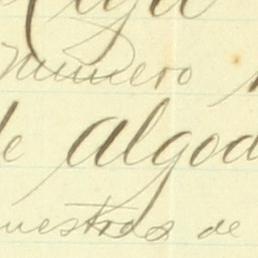 numero
de algod
muestras de